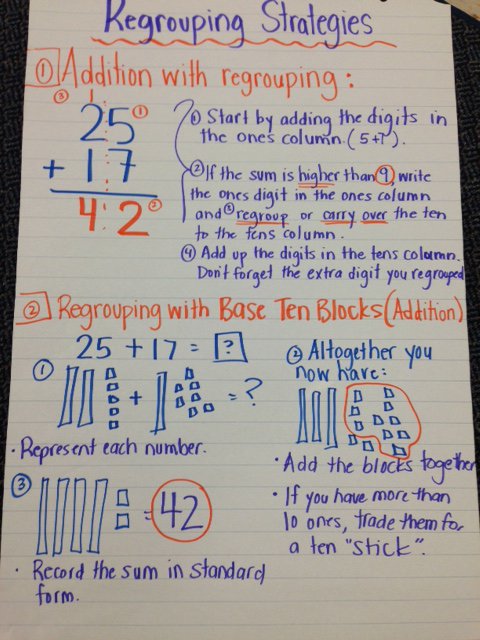 Regrouping Strategies
① Addition with regrouping:
③ 1
25 ①
+ 17
42 ②
① Start by adding the digits in
the ones column. (5+7).
② If the sum is higher than 9, write
the ones digit in the ones column
and ③ regroup or carry over the ten
to the tens column.
④ Add up the digits in the tens column.
Don't forget the extra digit you regrouped
② Regrouping with Base Ten Blocks (Addition)
25 + 17 = ?
① + = ?
· Represent each number.
② Altogether you
now have:
· Add the blocks together
· If you have more than
10 ones, trade them for
a ten "stick".
③ = 42
· Record the sum in standard
form.